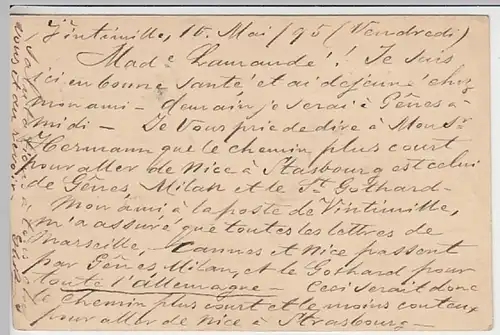 Vintimille, 10 Mai /95 (Vendredi)
Made Laurande!! Je suis
ici en bonne santé et ai déjeuné chez
mon ami — demain je serai à Gênes à
midi — Je vous prie de dire à Monsr
Hermann que le chemin plus court
pour aller de Nice à Stasbourg est celui
de Gênes Milan et le St Gothard —
Mon ami à la poste de Vintimille,
m'a assuré que toutes les lettres de
Marseille — Cannes et Nice passent
par Gênes Milan, et le Gothard pour
toute l'allemagne — Ceci serait donc
le chemin plus court et le moins couteux
pour aller de Nice à Strasbourg —